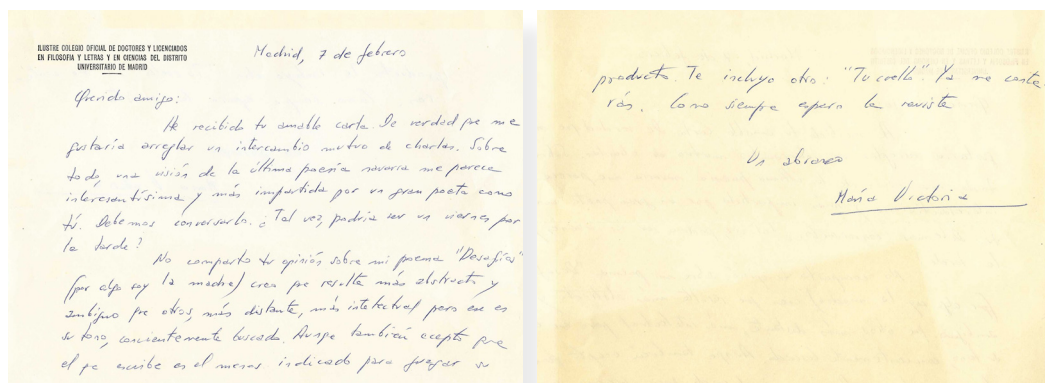 ILUSTRE COLEGIO OFICIAL DE DOCTORES Y LICENCIADOS
EN FILOSOFIA Y LETRAS Y EN CIENCIAS DEL DISTRITO
UNIVERSITARIO DE MADRID
Madrid, 7 de febrero
Querido amigo:
He recibido tu amable carta. De verdad que me
gustaría arreglar un intercambio mutuo de charlas. Sobre
todo, una visión de la última poesía navarra me parece
interesantísima y más impartida por un gran poeta como
tú. Debemos conversarlo. ¿Tal vez, podría ser un viernes por
la tarde?
No comparto tu opinión sobre mi poema "Desafíos"
(por algo soy la madre) creo que resulta más abstracto y
ambiguo que otros, más distante, más intelectual pero ese es
su tono, concientemente buscado. Aunque también acepto que
el que escribe es el menos indicado para juzgar su
producto. Te incluyo otro: "Tu cuello". Ya me conta-
rás. Como siempre espero la revista
Un abrazo
María Victoria